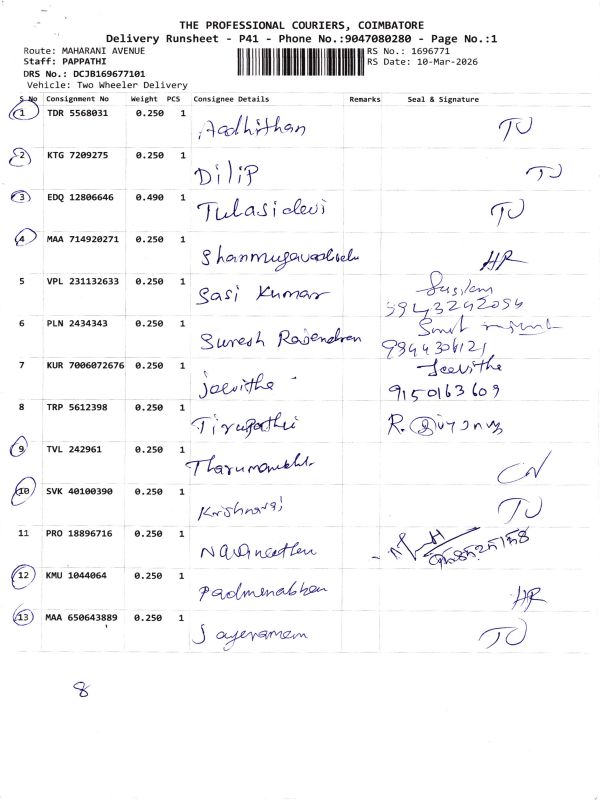 THE PROFESSIONAL COURIERS, COIMBATORE
Delivery Runsheet - P41 - Phone No.:9047080280 - Page No.:1
Route: MAHARANI AVENUE
RS No.: 1696771
Staff: PAPPATHI
RS Date: 10-Mar-2026
DRS No.: DCJB169677101
Vehicle: Two Wheeler Delivery
S No Consignment No Weight PCS Consignee Details Remarks Seal & Signature
1 TDR 5568031 0.250 1 Aadhithan TU
2 KTG 7209275 0.250 1 Dilip TU
3 EDQ 12806646 0.490 1 Tulasidevi TU
4 MAA 714920271 0.250 1 Shanmugavadivelu HR
5 VPL 231132633 0.250 1 Sasi Kumar
6 PLN 2434343 0.250 1 Suresh Rajendran
7 KUR 7006072676 0.250 1 Jeevitha Jeevitha
9150163609
8 TRP 5612398 0.250 1 Tirupathi R.
9 TVL 242961 0.250 1
10 SVK 40100390 0.250 1 Krishnaraj TU
11 PRO 18896716 0.250 1 Navaneethan
12 KMU 1044064 0.250 1 Padmenabhan HR
13 MAA 650643889 0.250 1 Jayeramem TU
8